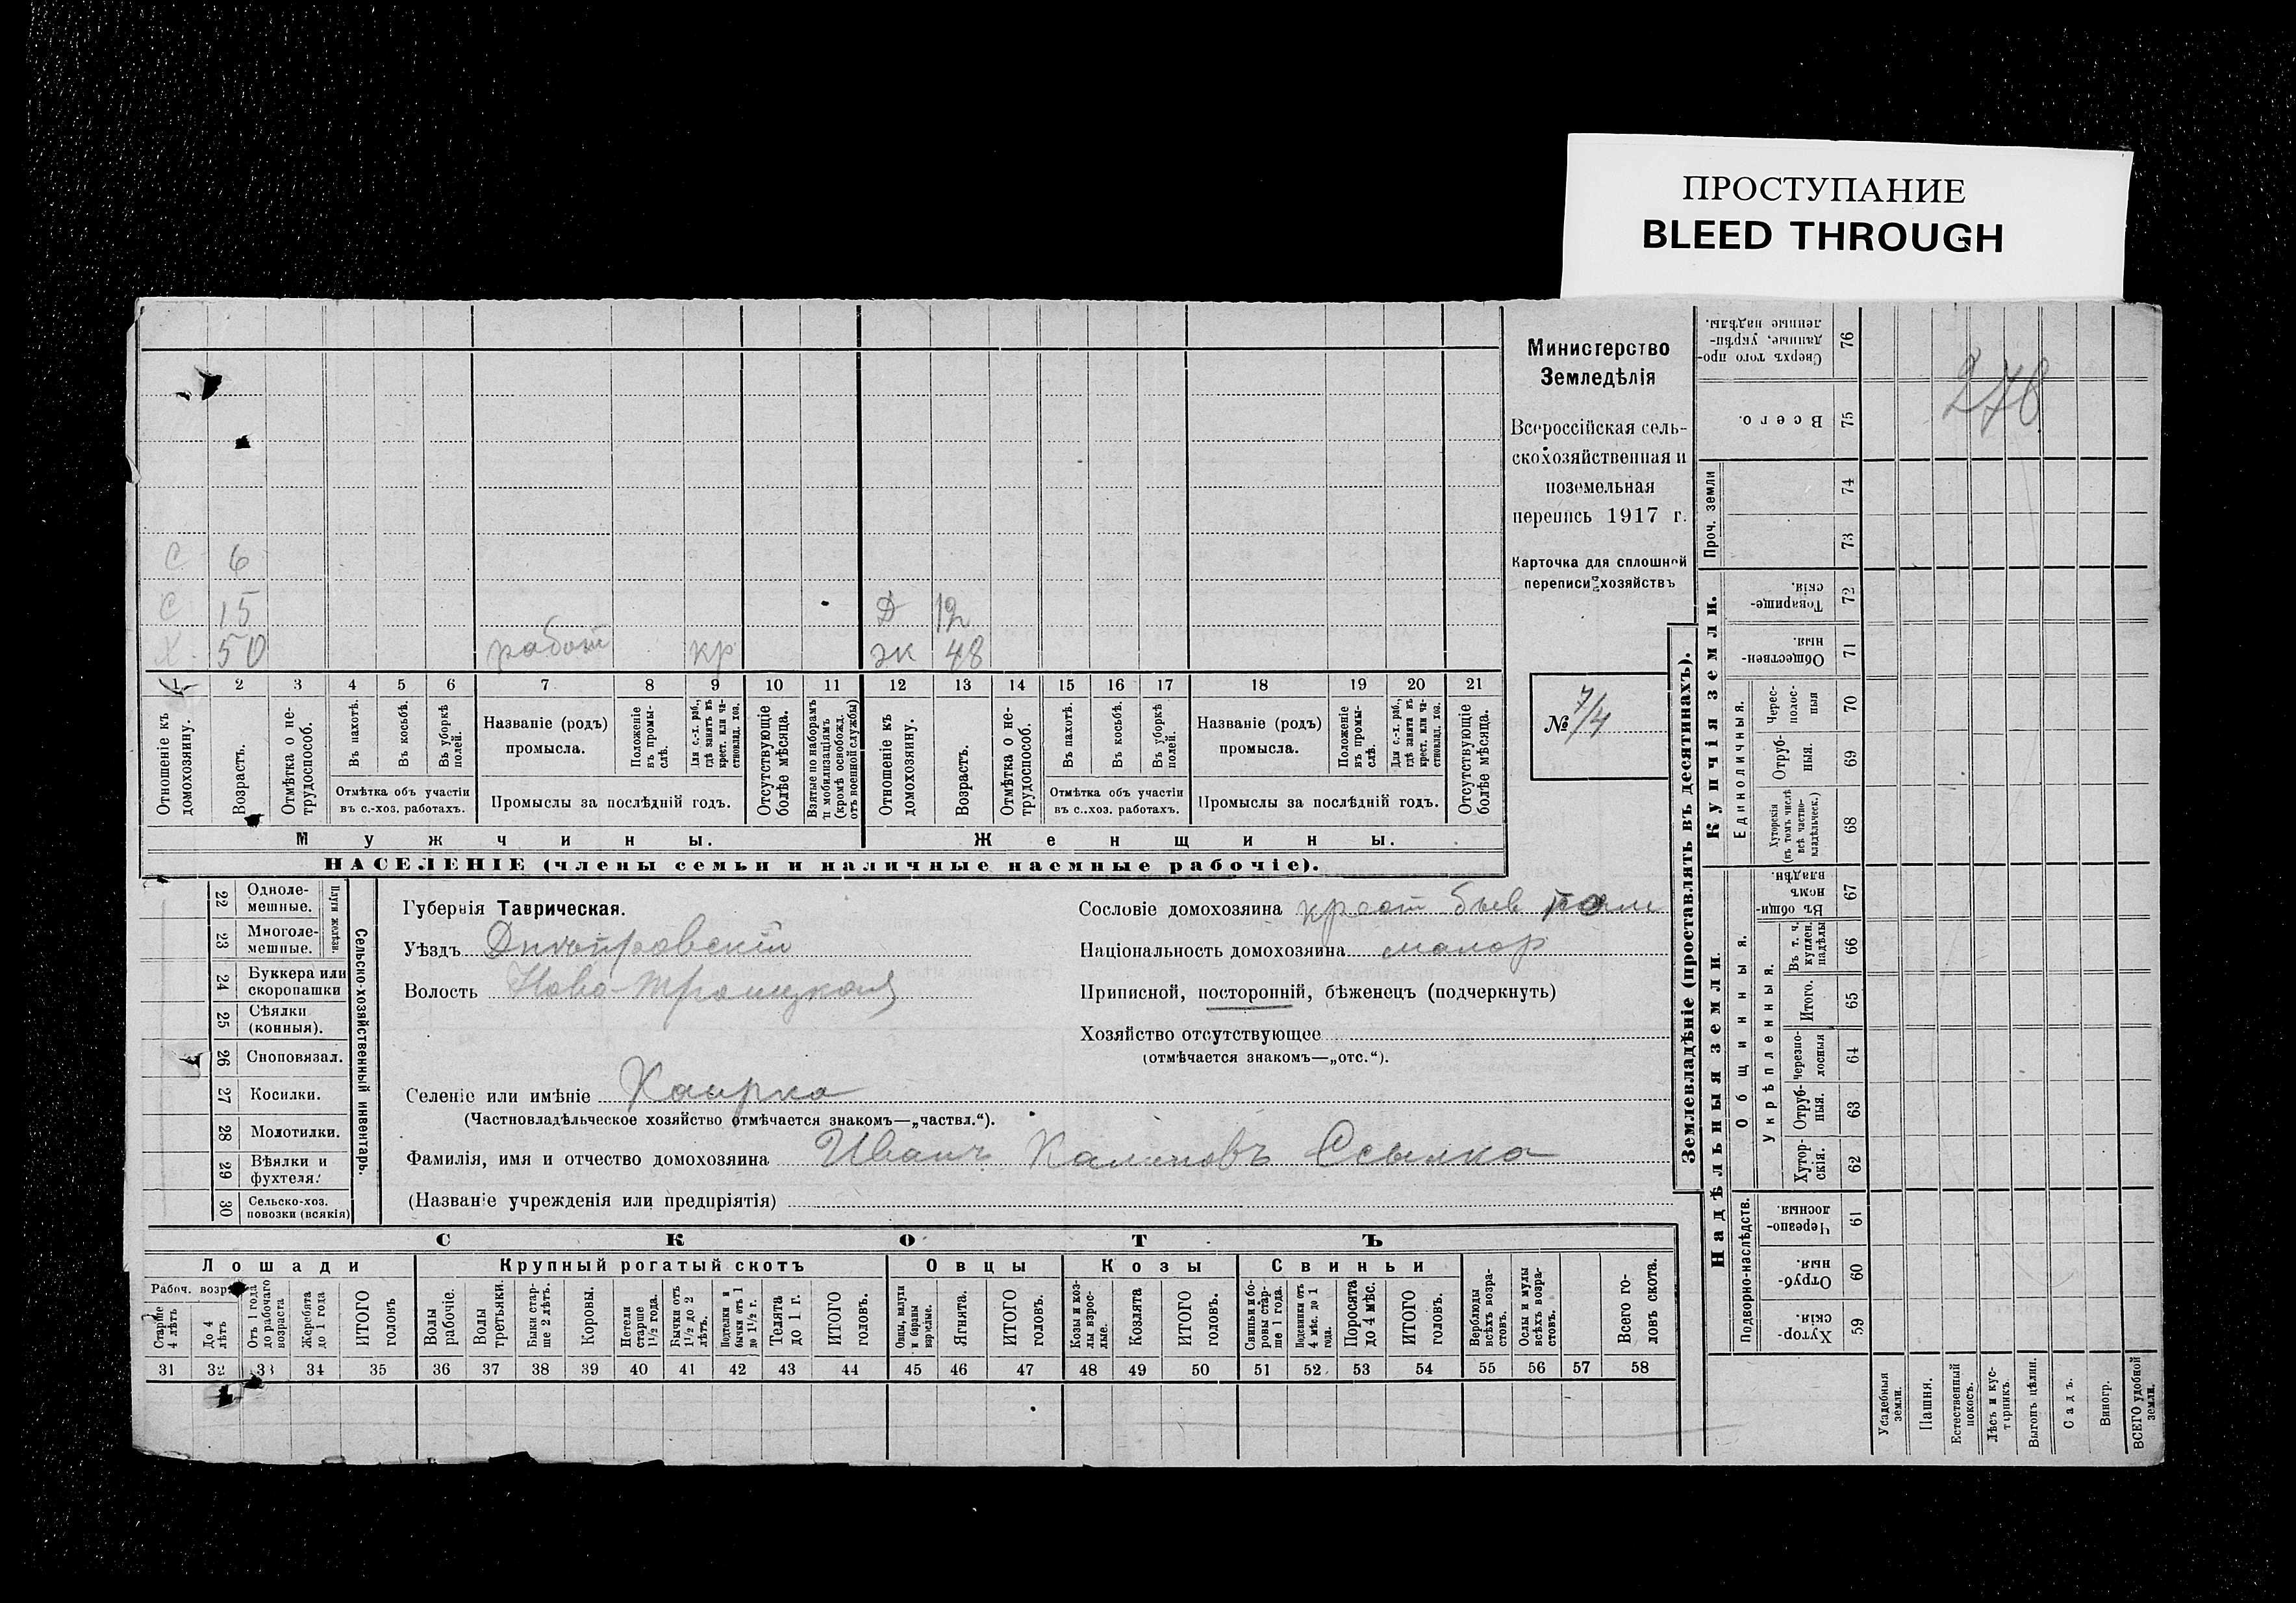 ПРОСТУПАНИЕ
BLEED THROUGH
Министерство
Земледѣлія
Всероссійская сель-
скохозяйственная и
поземельная
перепись 1917 г.
Карточка для сплошной
переписи хозяйствъ
№ 7/4
278
С 6
С 15 Д 12
Х 50 работ кр жк 48
1 2 3 4 5 6 7 8 9 10 11 12 13 14 15 16 17 18 19 20 21
Отношеніе къ домохозяину.
Возрастъ.
Отмѣтка о не-трудоспособ.
Въ пахотѣ.
Въ косьбѣ.
Въ уборкѣ полей.
Отмѣтка объ участіи
въ с.-хоз. работахъ.
Названіе (родъ)
промысла.
Положеніе въ промы-слѣ.
Для с.-х. раб., гдѣ занятъ въ крест. или ча-стновлад. хоз.
Промыслы за послѣдній годъ.
Отсутствующіе болѣе мѣсяца.
Взятые по наборамъ и мобилизаціямъ (кромѣ освобожд. отъ военной службы)
Отношеніе къ домохозяину.
Возрастъ.
Отмѣтка о не-трудоспособ.
Въ пахотѣ.
Въ косьбѣ.
Въ уборкѣ полей.
Отмѣтка объ участіи
въ с..хоз. работахъ.
Названіе (родъ)
промысла.
Положеніе въ промы-слѣ.
Для с.-х. раб., гдѣ занята въ крест. или ча-стновлад. хоз.
Промыслы за послѣдній годъ.
Отсутствующіе болѣе мѣсяца.
Мужчины. Женщины.
НАСЕЛЕНІЕ (члены семьи и наличные наемные рабочіе).
22 Одноле-мешные.
23 Многоле-мешные.
Плуги желѣзн.
24 Буккера или скоропашки
25 Сѣялки (конныя).
26 Сноповязал.
27 Косилки.
28 Молотилки.
29 Вѣялки и фухтеля.
30 Сельско-хоз. повозки (всякія)
Сельско-хозяйственный инвентарь.
Губернія Таврическая.
Уѣздъ Днѣпровскій
Волость Ново-Троицкая
Селеніе или имѣніе Каирка
(Частновладѣльческое хозяйство отмѣчается знакомъ—„частвл.“).
Фамилія, имя и отчество домохозяина Иванъ Калиновъ Ссылка
(Названіе учрежденія или предпріятія)
Сословіе домохозяина крест быв пом
Національность домохозяина малор
Приписной, посторонній, бѣженецъ (подчеркнуть)
Хозяйство отсутствующее
(отмѣчается знакомъ—„отс.“).
СКОТЪ
Лошади Крупный рогатый скотъ Овцы Козы Свиньи
Рабоч. возр.
Старше 4 лѣтъ
До 4 лѣтъ
Отъ 1 года до рабочаго возраста
Жеребята до 1 года
ИТОГО головъ
Волы рабочіе.
Волы третьяки.
Быки стар-ше 2 лѣтъ.
Коровы.
Нетели старше 1½ года.
Бычки отъ 1½ до 2 лѣтъ.
Подтелки и бычки отъ 1 до 1½ г.
Телята до 1 г.
ИТОГО головъ.
Овцы, валухи и бараны взрослые.
Ягнята.
ИТОГО головъ.
Козы и коз-лы взрос-лые.
Козлята
ИТОГО головъ.
Свиньи и бо-ровы стар-ше 1 года.
Подсвинки отъ 4 мѣс. до 1 года.
Поросята до 4 мѣс.
ИТОГО головъ.
Верблюды всѣхъ возра-стовъ.
Ослы и мулы всѣхъ возра-стовъ.
Всего го-ловъ скота.
31 32 33 34 35 36 37 38 39 40 41 42 43 44 45 46 47 48 49 50 51 52 53 54 55 56 57 58
Землевладѣніе (проставлять въ десятинахъ).
Надѣльныя земли. Купчія земли.
Проч. земли
Подворно-наслѣдств.
Общинныя.
Укрѣпленныя.
Единоличныя.
Сверхъ того про-данные, укрѣп-ленные надѣлы. 76
Всего. 75
74
73
Товарище-скія. 72
Обществен-ныя. 71
Черес-полос-ныя 70
Отруб-ныя. 69
Хуторскія (въ томъ числѣ всѣ частно-владѣльческ.) 68
Въ общи-номъ владѣн. 67
Въ т. ч. куплен. надѣлы 66
Итого. 65
Черезпо-лосныя 64
Отруб-ныя. 63
Хутор-скія. 62
Черезпо-лосныя 61
Отруб-ныя. 60
Хутор-скія. 59
Усадебныя земли.
Пашня.
Естественный покосъ.
Лѣсъ и кус-тарникъ.
Выгонъ цѣлин.
Садъ.
Виногр.
ВСЕГО удобной земли.